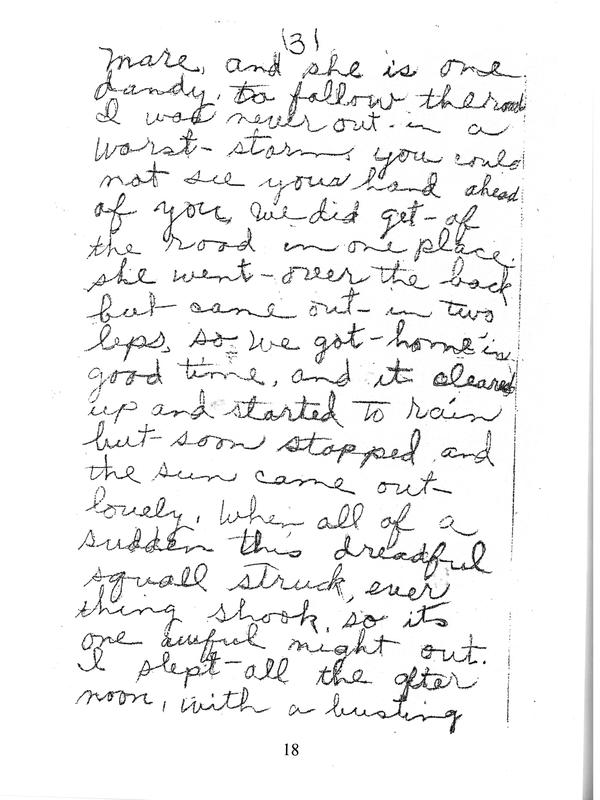 (3)
mare, and she is one
dandy, to follow the road
I was never out in a
worst storm, you could
not see your hand ahead
of you, we did get of
the road in one place.
she went over the back
but came out in two
leps, so we got home in
good time, and it cleared
up and started to rain
but soon stopped and
the sun came out
lovely, when all of a
sudden this dreadful
squall struck, ever
thing shook, so its
one awful night out.
I slept all the after
noon, with a busting
18